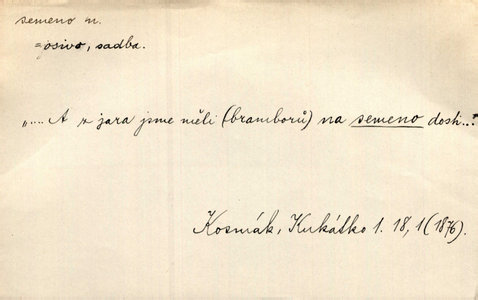 semeno n.
= osivo, sadba.
„.... A z jara jsme měli (bramborů) na semeno dosti..."
Kosmák, Kukátko 1. 18, 1 (1876).